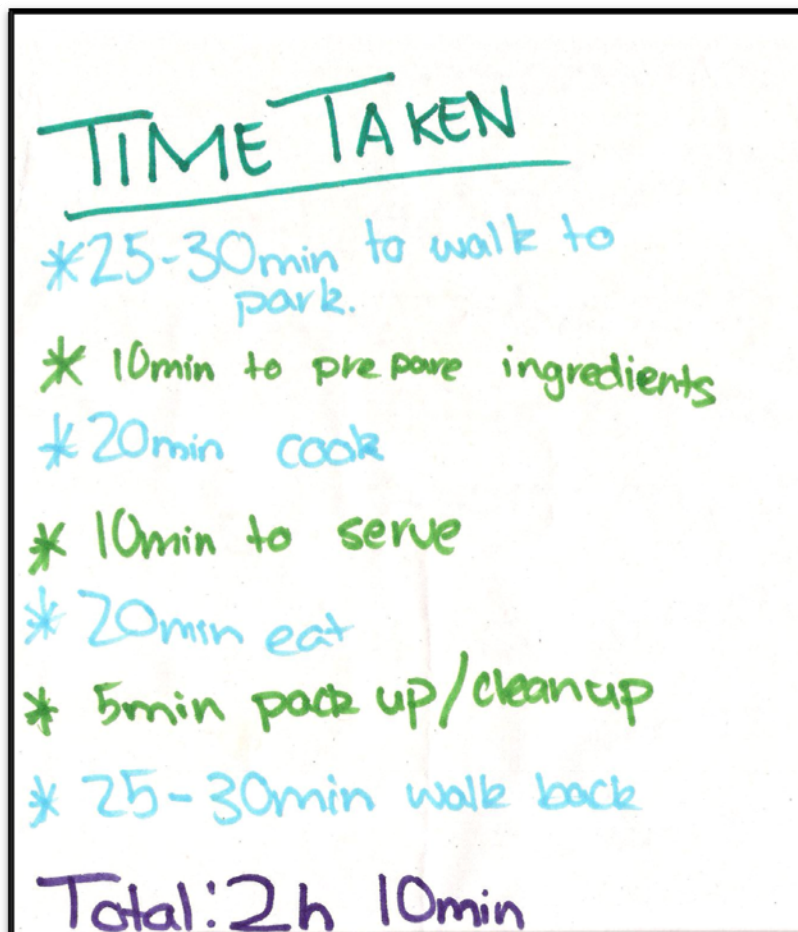 TIME TAKEN
*25-30min to walk to
park.
* 10min to prepare ingredients
* 20min cook
* 10min to serve
* 20min eat
* 5min pack up/cleanup
* 25-30min walk back
Total: 2h 10min